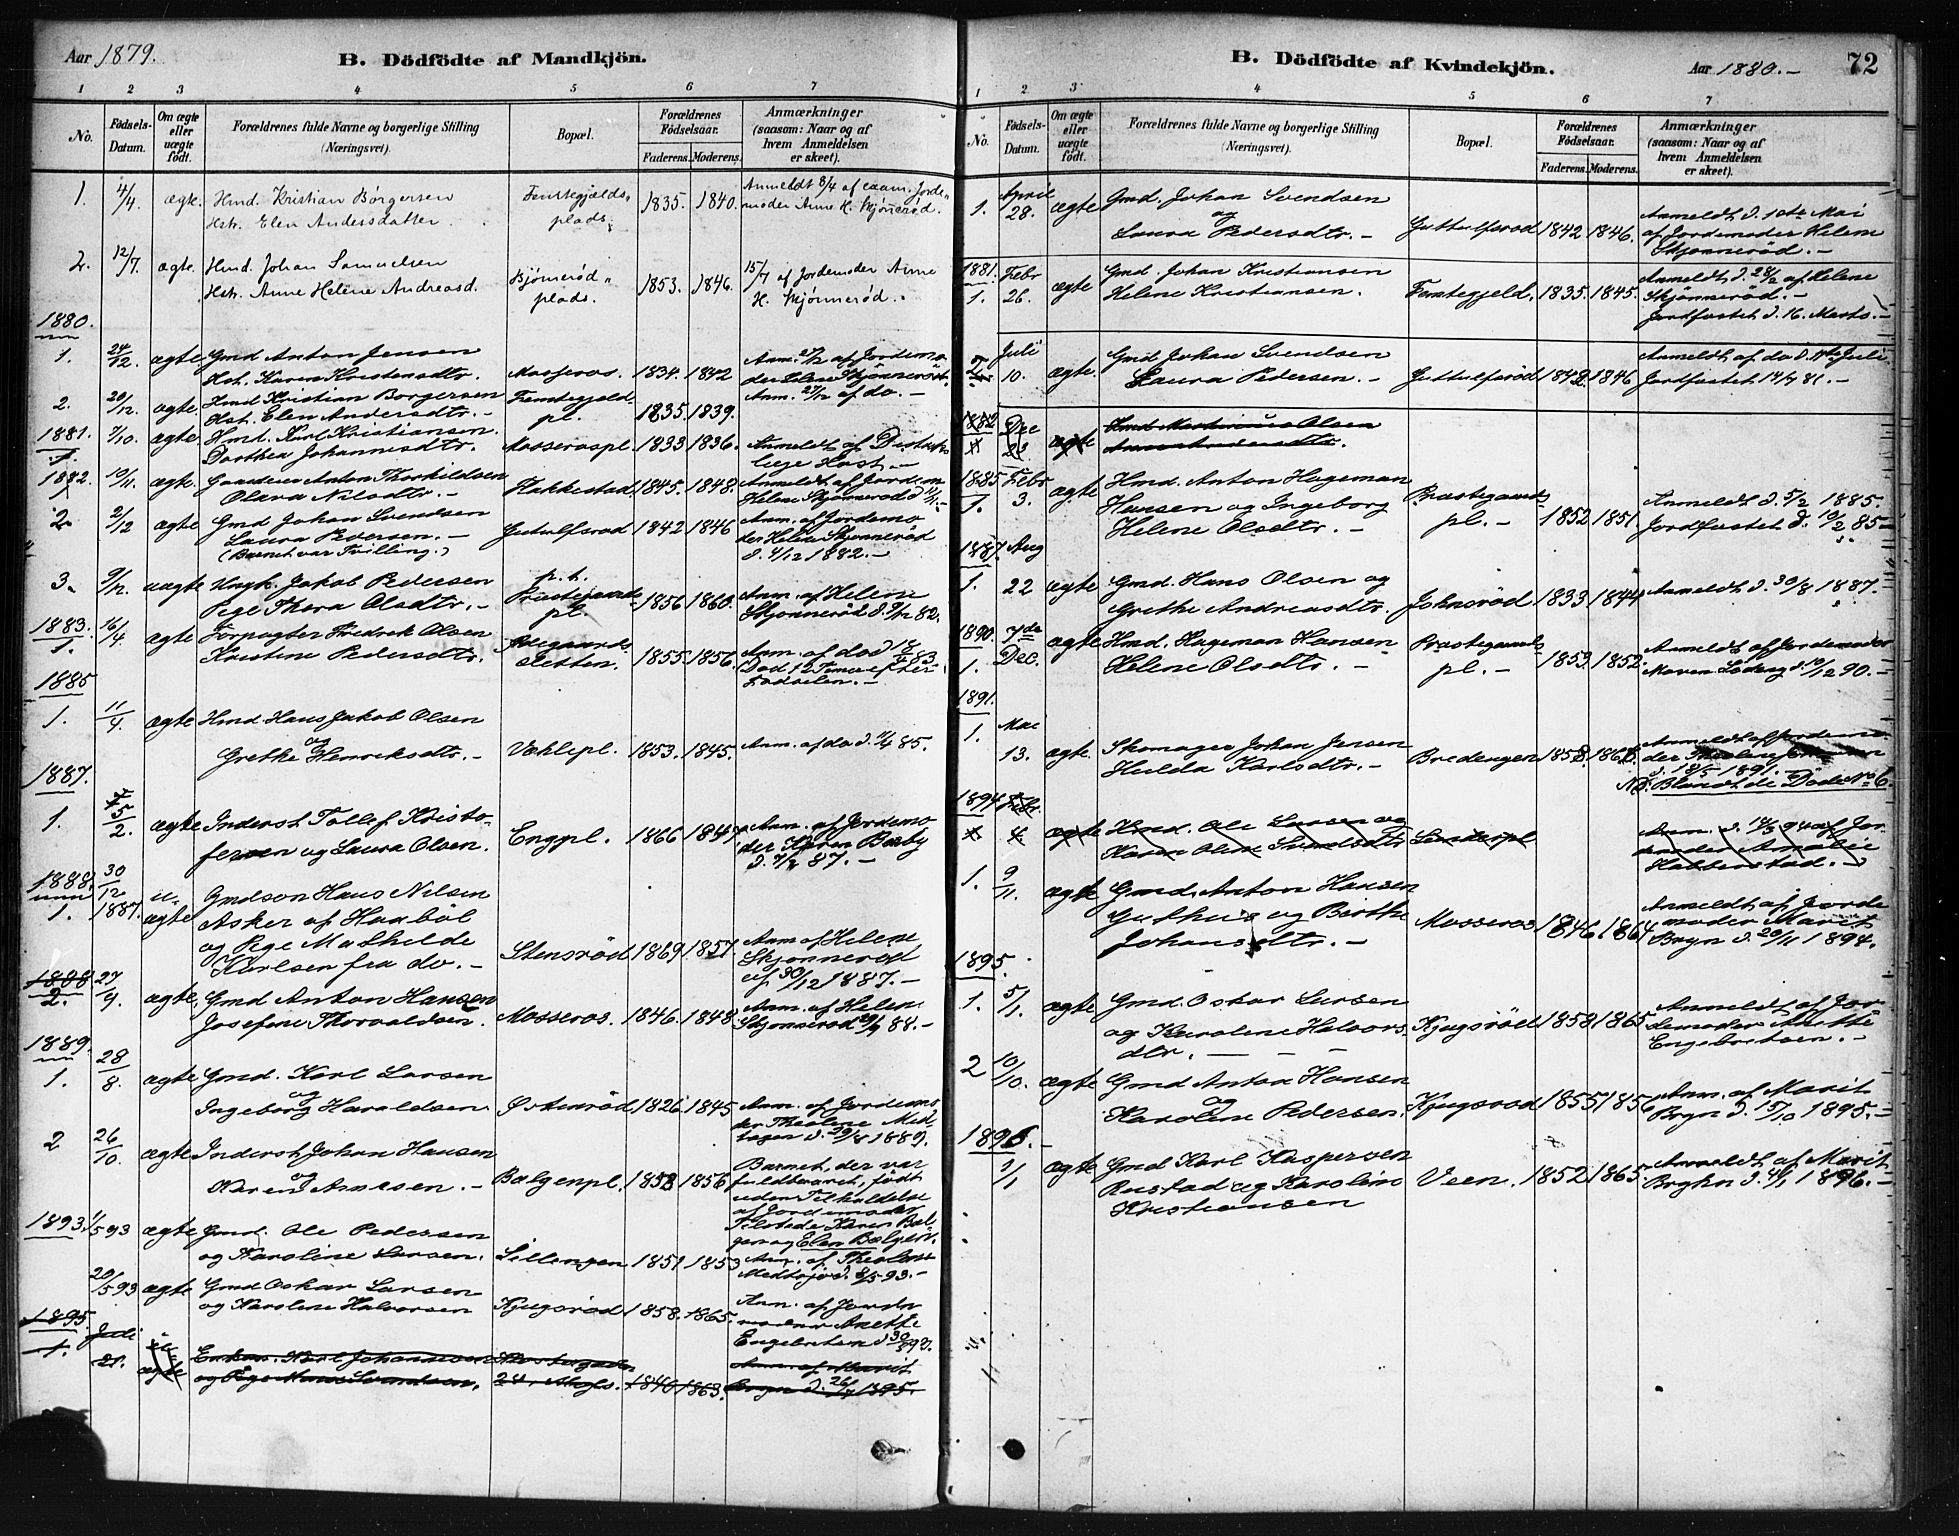 Aar 1879.
B. Dödfödte af Mandkjön.
1 2 3 4 5 6 7
No.
Födsels-
Datum.
Om ægte
eller
uægte
födt.
Forældrenes fulde Navne og borgerlige Stilling
(Næringsvei).
Bopæl.
Forældrenes
Födselsaar.
Faderens. Moderens.
Anmærkninger
(saasom: Naar og af
hvem Anmeldelsen
er skeet).
1. 4/4. ægte. Hmd. Kristian Börgersen
Hstr. Elen Andersdatter
plads. 1835. 1840.
Anmeldt 8/4 af Jorde-
moder Anne H. Skjönnerød.
2. 12/7. ægte. Hmd. Johan Samuelsen
Hstr. Anne Helene Andreasd.
Bjørnerød-
plads. 1853. 1846.
15/7 af Jordemoder Anne
H. Skjönnerød.
1880.
1. 24/12 ægte Gmd Anton Jensen
Hst. Karen Kristensdtr. Mosseros. 1834. 1842
Anm. 27/12 af Jordemo
der Helene Skjønnerød.
2. 20/12. ægte Hmd Kristian Borgersen
Hst. Elen Andersdtr. - pl. 1835. 1839.
Anm. 27/12 af do. -
1881.
1. 7/10. ægte. Hmd. Karl Kristiansen.
Dorthea Johannesdtr. Mosserospl. 1833 1836.
Anmeldt af Distrikts
læge Høst. -
1882.
1 10/11. ægte. Gaardeier Anton Thorkildsen
Olava Nilsdtr. - Flakkestad. 1845. 1848.
Anmeldt af Jordem
Helene Skjønnerød
2. 2/12 ægte Gmd Johan Svendsen
Laura Pedersen. -
(Barnet var Tvilling.)
Guttulfsrød 1842 1846
Anm. af Jordemo
der Helene Skjønnerød
d. 4/12 1882. -
3. 9/12. uægte Ungk. Jakob Pedersen
Pige Thora Olsdtr. -
p.t.
Præstegaards
pl. 1856 1860.
Anm. af Helene
Skjønnerød d. 9/12 82.
1883.
1. 16/4. ægte Forpagter Fredrik Olsen
Kristine Pedersdtr. 1855. 1856.
Anm. af do d 18/4 83
(Død 12 Timer efter
Fødselen. -
1885
1. 11/4. ægte Hmd. Hans Jakob Olsen
og
Grethe Henriksdtr. - Væhlepl. 1853. 1845.
1887.
1. 5/2. ægte Inderst Tollef Kristo-
fersen og Laura Olsen. Engpl. 1866 1847
Anm. af Jordemo
der Karen Bæby
d. 7/2 87. -
1888.
1. 30/12 1887. u-
ægte Gmdsøn Hans Nilsen
Asker af Haabøl
og Pige Mathilde
Karlsen fra do. -
Stensrød 1869. 1857.
Anm af Helene
Skjønnerød
af 30/12 1887. -
1888
2. 27/9. ægte. Gmd Anton Hansen
Josefine Thorvaldsen. Mosseros. 1846. 1848.
Anm. af Helene
Skjønnerød 29/9 88. -
1889.
1. 28/8. ægte Gmd. Karl Larsen
og
Ingeborg Haraldsen. Østenrød 1826. 1845
Anm. af Jordemo
der Theoline Med
bogen d. 29/8 1889.
2 26/10. ægte Inderst Johan Hansen
og
Karen Arnesen. - Bælgenpl. 1853 1856
Barnet, der var
fuldbaaret, født
uden Tilkaldelse
af Jordemoder
Tilstede Karen Bæl
gen og Elen Bælgen.
1893. 1/5 93 ægte Gmd. Ole Pedersen
og Karoline Larsen. Sillengen 1851 1853
Anm. af Theoline
20/5 93 ægte Gmd Oskar Larsen
og Karoline Halvorsen Kjugsrød 1858. 1865.
Anm. af Jorde
moder Anette
Engebretsen d 30/5 93.
1895.
1. Juli
21. u-
ægte Enkm. Karl Johannesen
og Pige Svendsen. 1840 1863.
Anm. af Marit
Bryn d. 26/7 1895.
B. Dödfödte af Kvindekjön.
Aar 1880. -
72
1 2 3 4 5 6 7
No.
Födsels-
Datum.
Om ægte
eller
uægte
födt.
Forældrenes fulde Navne og borgerlige Stilling
(Næringsvei).
Bopæl.
Forældrenes
Födselsaar.
Faderens. Moderens.
Anmærkninger
(saasom: Naar og af
hvem Anmeldelsen
er skeet).
1. April
28. ægte Gmd. Johan Svendsen
og
Laura Pedersdtr. - Guttulfsrød 1842 1846.
Anmeldt d. 10de Mai
af Jordemoder Helene
Skjønnerød. -
1881.
1. Febr
26. ægte Gmd. Johan Kristiansen
Helene Kristiansen. Femtegjeld. 1835. 1845.
Anmeldt d. 28/2 af Helene
Skjønnerød. -
Jordfæstet d. 16. Marts. -
2. Juli
10. ægte. Gmd Johan Svendsen
Laura Pedersen. - Guttulfsrød 1842. 1846
Anmeldt af do d. Juli
Jordfæstet 14/7 81. -
1882
1 Dec
ægte Hmd Martinius Olsen
1885
1. Febr
3. ægte Hmd. Anton Hageman
Hansen og Ingeborg
Helene Olsdtr. -
Præstegaards
pl. - 1852 1851
Anmeldt d. 5/2 1885.
Jordfæstet d. 10/2 85 -
1887.
1. Aug
22 ægte Gmd. Hans Olsen og
Grethe Andreasdtr. Johnsrød 1833 1844
Anmeldt d. 30/8 1887.
1890.
1. 7de
Dec. ægte Hmd. Hageman Hansen
Helene Olsdtr. -
Præstegaards
pl. - 1853. 1852.
Anmeldt af Jordemoder
Maren d. 10/12 90. -
1891.
1. Mai
13. ægte. Skomager Johan Jensen
Hulda Karlsdtr. - Bredengen
Anmeldt af Jordemo
der Theoline
d. 18/5 1891. -
NB. Blandt de Døde No 6.
1894 Febr.
ægte Hmd. Ole Larsen og
Karen Oline
Anm. d. 94 af Jor
demoder Amalie
Habberstad. -
1. 9/11. ægte Gmd. Anton Hansen
og Birthe
Johansdtr. - Mosseros 1846. 1864
Anmeldt af Jorde
moder Marit
Bryn d. 20/11 1894.
1895.
1. 5/1. ægte Gmd. Oskar Larsen
og Karoline Halvors
dtr. - - - Kjugsrød 1858 1865
Anmeldt af Jor
demoder Anette
Engebretsen. -
2 10/10. ægte Gmd Anton Hansen
og
Karoline Pedersen. Kjugsrød 1855 1856
Anm. af Marit
Bryn d. 15/10 1895. -
1896. -
1/1 ægte Gmd Karl Kaspersen
Rustad og Karoline
Kristiansen
Veen. 1852 1865.
Anmeldt af Marit
Bryhn d. 4/1 1896. -